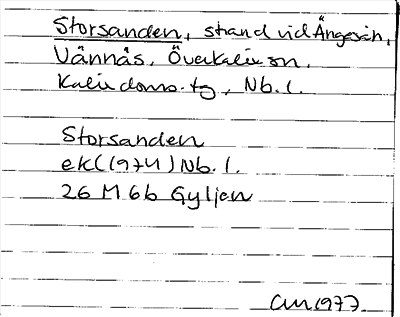 Storsanden, strand vid Ängesån,
Vännäs, Överkalix sn,
Kalix doms. tg, Nb. l.
Storsanden
ek (1974) Nb. l.
26 M 6b Gyljen
1977